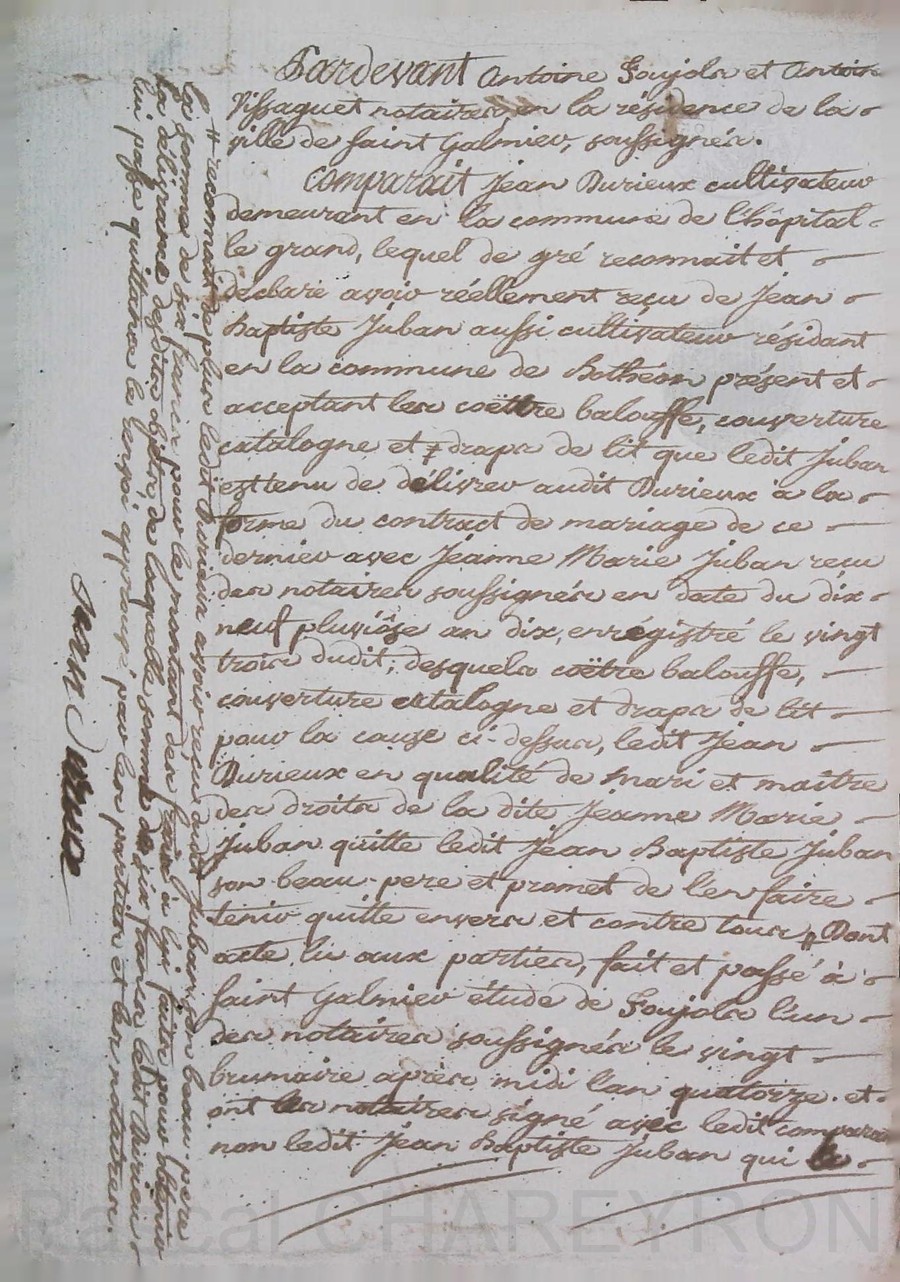 Pardevant Antoine Soujols et Antoine
Vissaguet notaires en la résidence de la
ville de Saint Galmier, soussignés.
Comparait Jean Durieux cultivateur
demeurant en la commune de l'hôpital
le grand, lequel de gré reconnait et
déclare avoir réellement reçu de Jean
Baptiste Juban aussi cultivateur résidant
en la commune de Bothéon présent et
acceptant les coëttre balouffe, couverture
catalogne et draps de lit que ledit Juban
est tenu de délivrer audit Durieux à la
forme du contract de mariage de ce
dernier avec Jeanne Marie Juban reçu
des notaires soussignés en date du dix
neuf pluviôse an dix, enrégistré le vingt
trois dudit; desquels coëtre balouffe,
couverture catalogne et draps de lit
pour la cause ci-dessus, ledit Jean
Durieux en qualité de mari et maitre
des droits de la dite Jeanne Marie
Juban quitte ledit Jean Baptiste Juban
son beau-pere et promet de l'en faire
tenir quitte envers et contre tous # Dont
acte lu aux parties, fait et passé à
Saint Galmier étude de Soujols l'un
des notaires soussignés le vingt
brumaire après midi l'an quatorze. et
ont les notaires signé avec ledit comparait
non ledit Jean Baptiste Juban qui
# reconnait de plus ledit Durieux avoir reçu dudit Juban son beau-père
la somme de six francs pour le montant des frais à lui faits pour obtenir
la délivrance desdits objets de laquelle somme de six francs ledit Durieux
lui passe quittance le renvoi approuvé par les parties et les notaires.
Jean Durieux
Pascal CHAREYRON